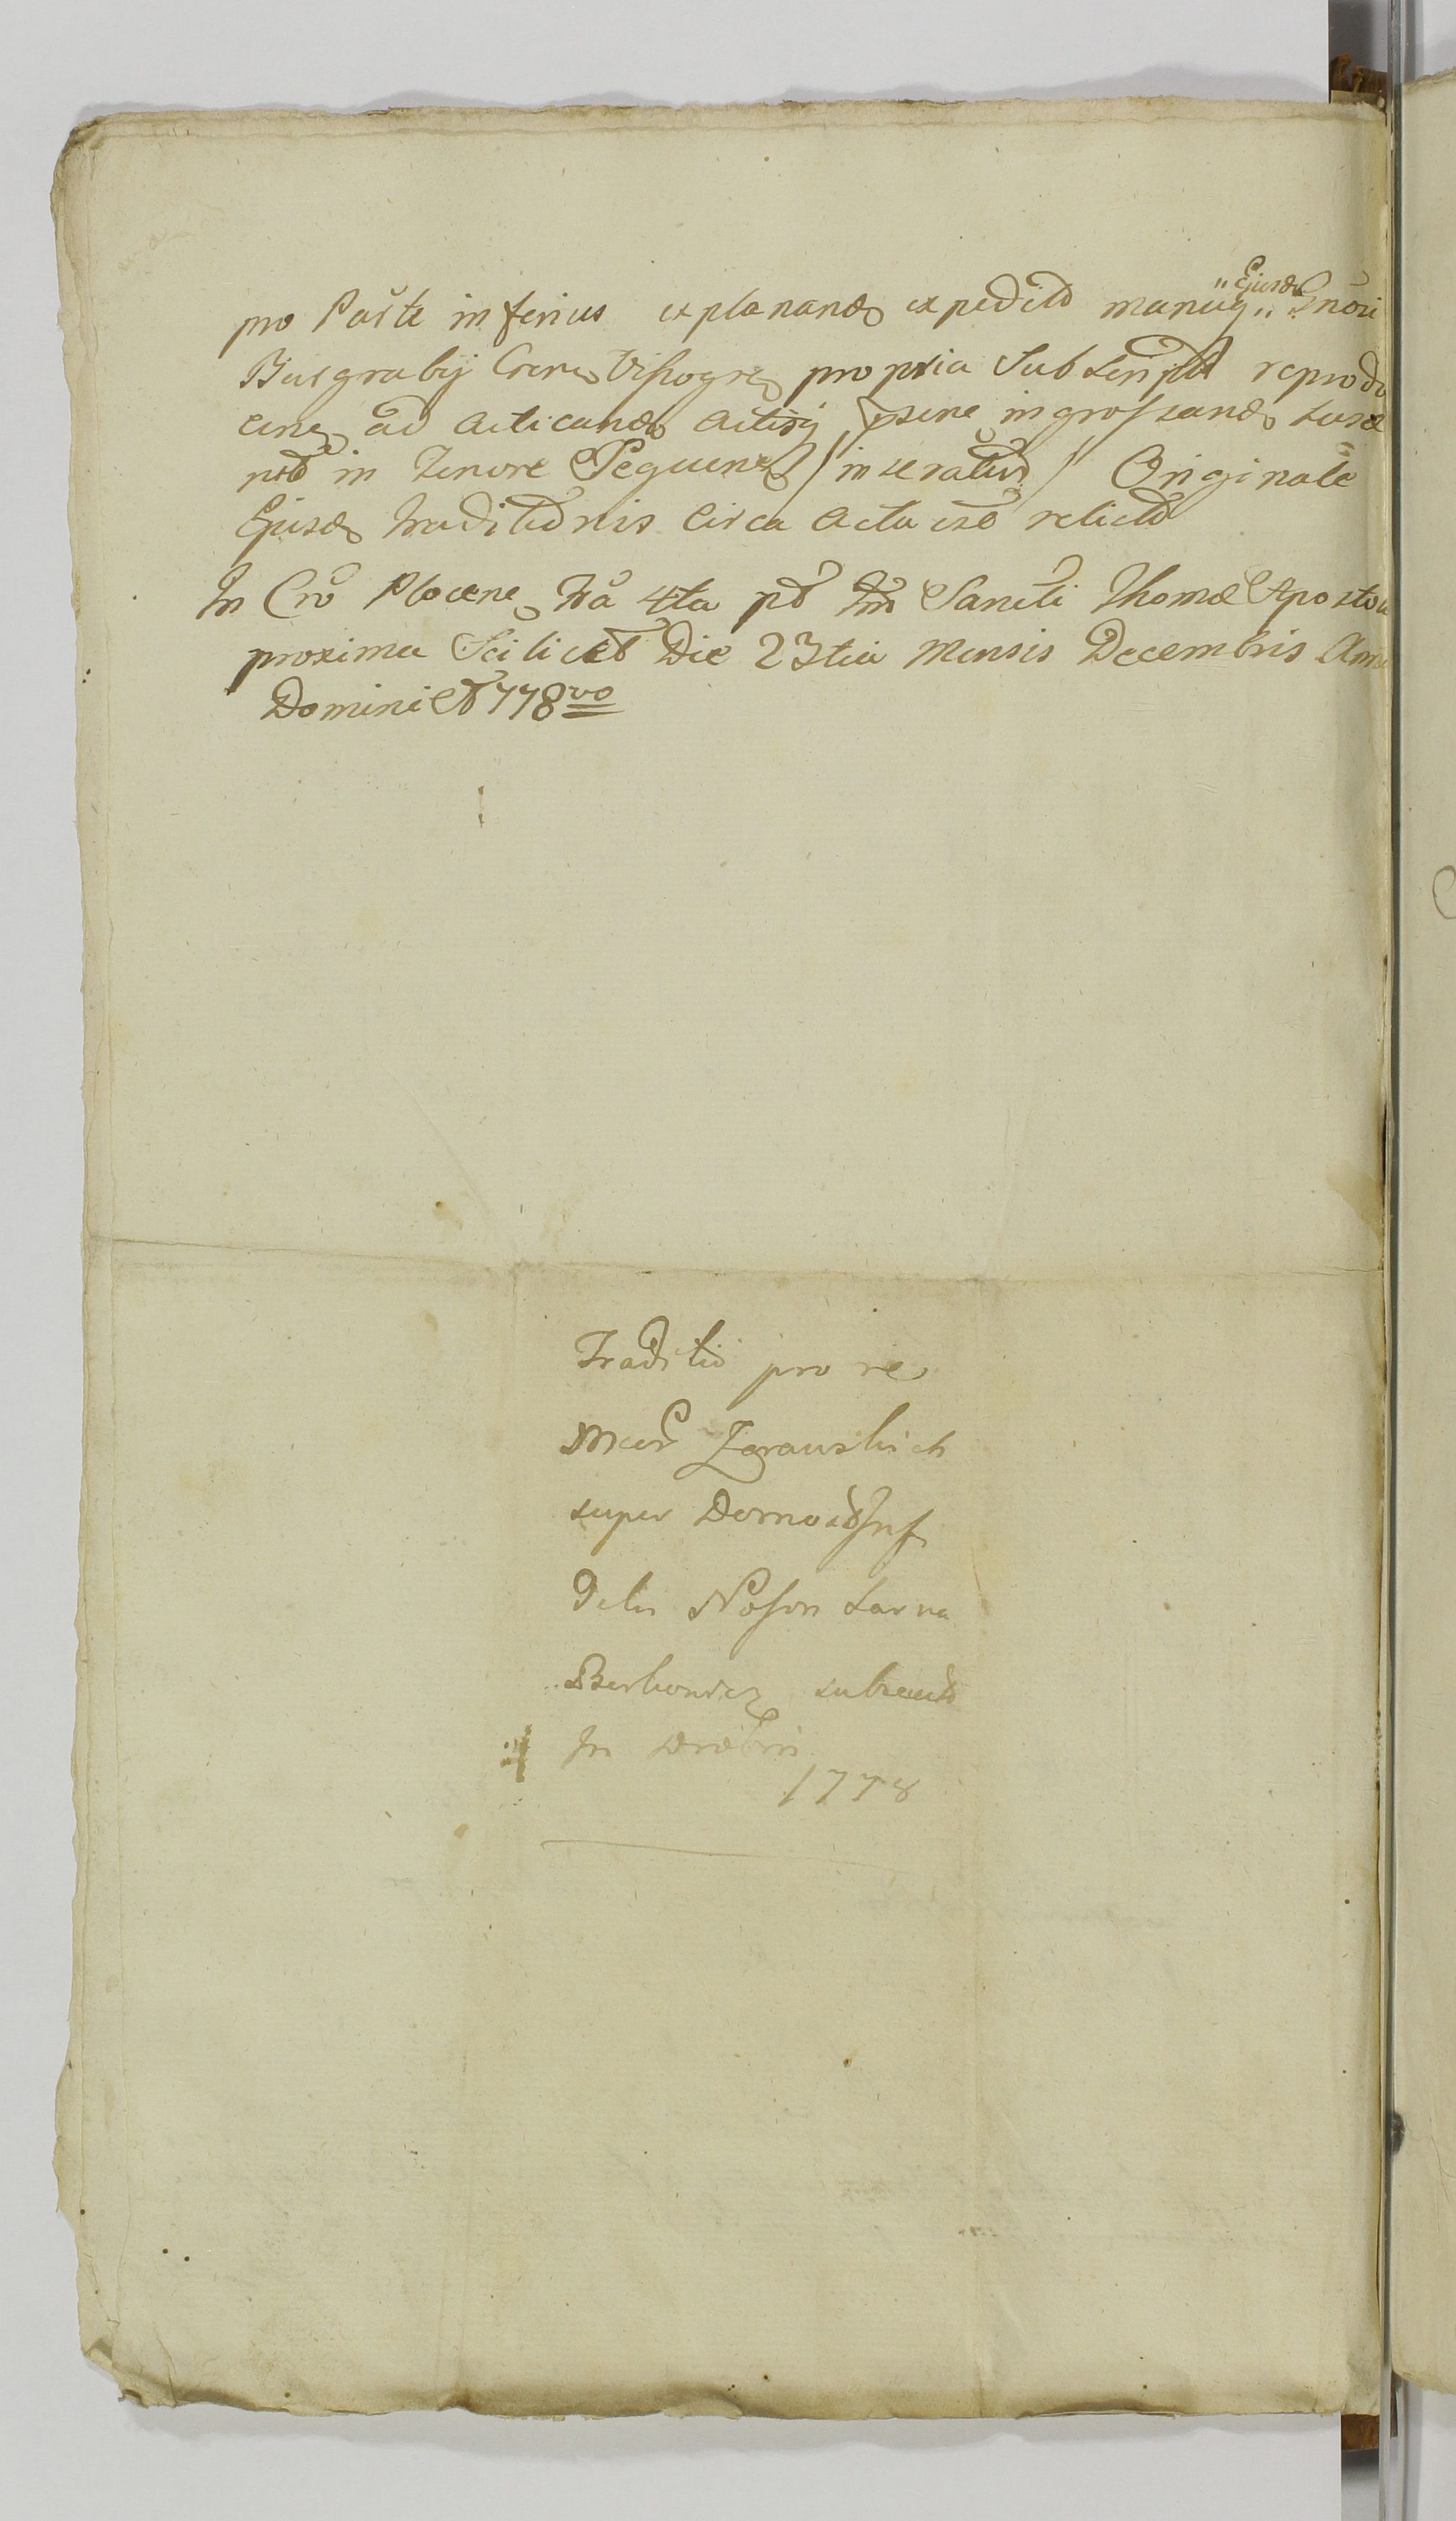 pro Parte inferius explanand expedit manuq „Ejusd„ Gnosi
Burgrabij Crens Vissogre propria Subscript reprodu
cens ad acticand actisq psen ingrossand susce
pit in Tenore Sequent / inseratur / Originale
Ejusd traditionis circa acta est relict
In Cro Plocen Fria 4ta pt Ftm Sancti Thomæ Aposto
proxima Scilicet Die 23tia Mensis Decembris Anno
Domini 1778vo
Traditio pro re
Mcor Zgrawskich
super Domo et Inf
Delis Noson Sarna
Berkowicz subsecut
In Drobin
1778